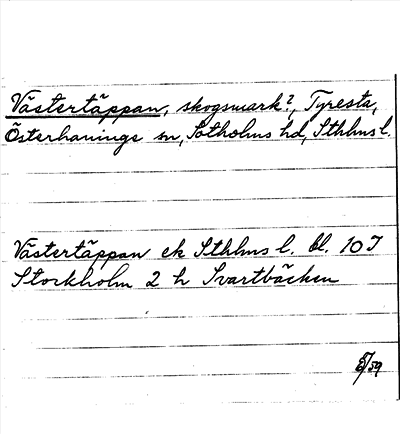 Västertäppan, skogsmark?, Tyresta,
Österhanings sn, Sotholms hd, Sthlms l.
Västertäppan ek Sthlms l. bl. 10 I
Stockholm 2 h Svartbäcken
/59